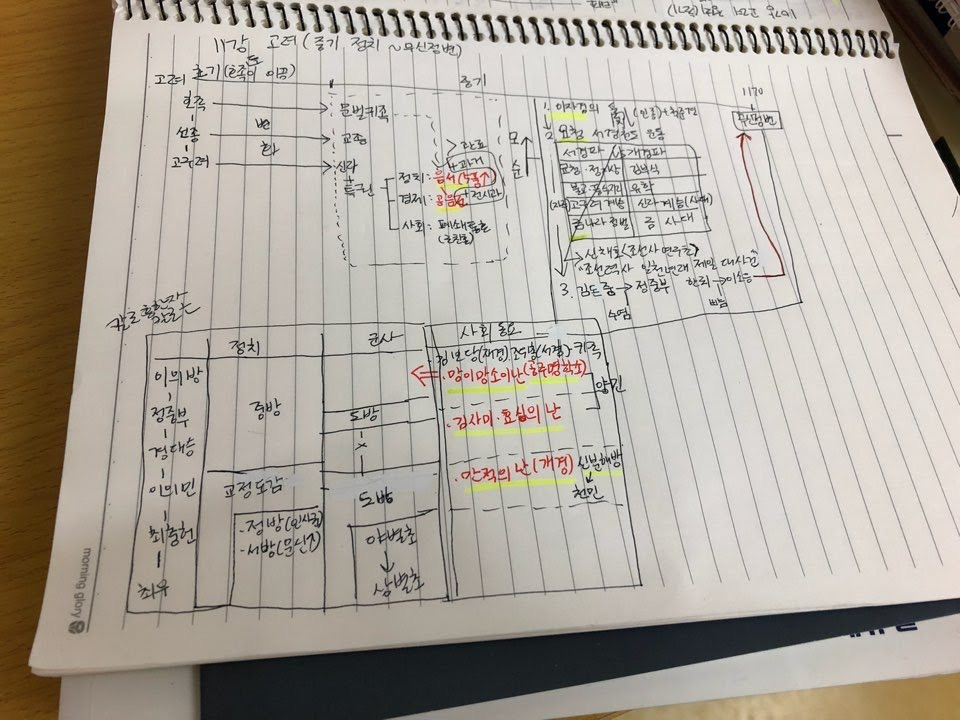 11강 고려 (중기 정치 ~무신정변)
고려 초기 (호족이 이끔)
중기
호족
문벌귀족
선종
변
교종
고구려
화
신라
특권
정치: 음서 (5품↑)
경제: 공음전
사회: 폐쇄적
관료
+과거
+전시과
모
순
1. 이자겸의 난 (인종)
2. 묘청 서경천도 운동
서경파
개경파
묘청·정지상
김부식
불교·풍수지리
유학
(자주) 고구려 계승
신라 계승 (사대)
금나라 정벌
금 사대
신채호 (조선사 연구초)
"조선역사 일천년래 제일 대사건
3. 김돈중 → 정중부
한뢰 → 이소응
수염
뺨
1170
무신정변
정치
군사
사회 동요
이의방
정중부
경대승
이의민
최충헌
최우
중방
도방
x
교정도감
도방
·정방 (인사권)
·서방 (문신)
야별초
삼별초
·김보당 (재경), 조위총 (서경) 귀족
·망이망소이난 (공주명학소)
양민
·김사미·효심의 난
·만적의 난 (개경)
신분해방
천민
morning glory